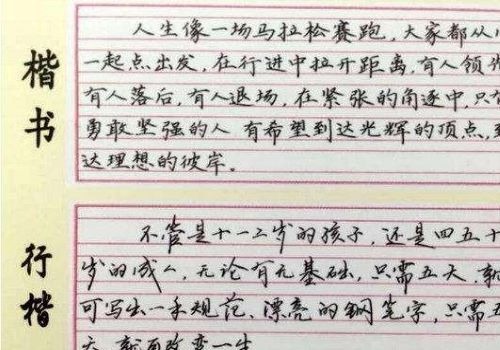 楷书
人生像一场马拉松赛跑,大家都从
一起点出发,在行进中拉开距离,有人领先
有人落后,有人退场,在紧张的角逐中,只有
勇敢坚强的人 有希望到达光辉的顶点,到
达理想的彼岸。
行楷
不管是十一二岁的孩子,还是四五十
岁的成人,无论有无基础,只需五天,就
可写出一手规范、漂亮的钢笔字,只需五
天,就能改变一生